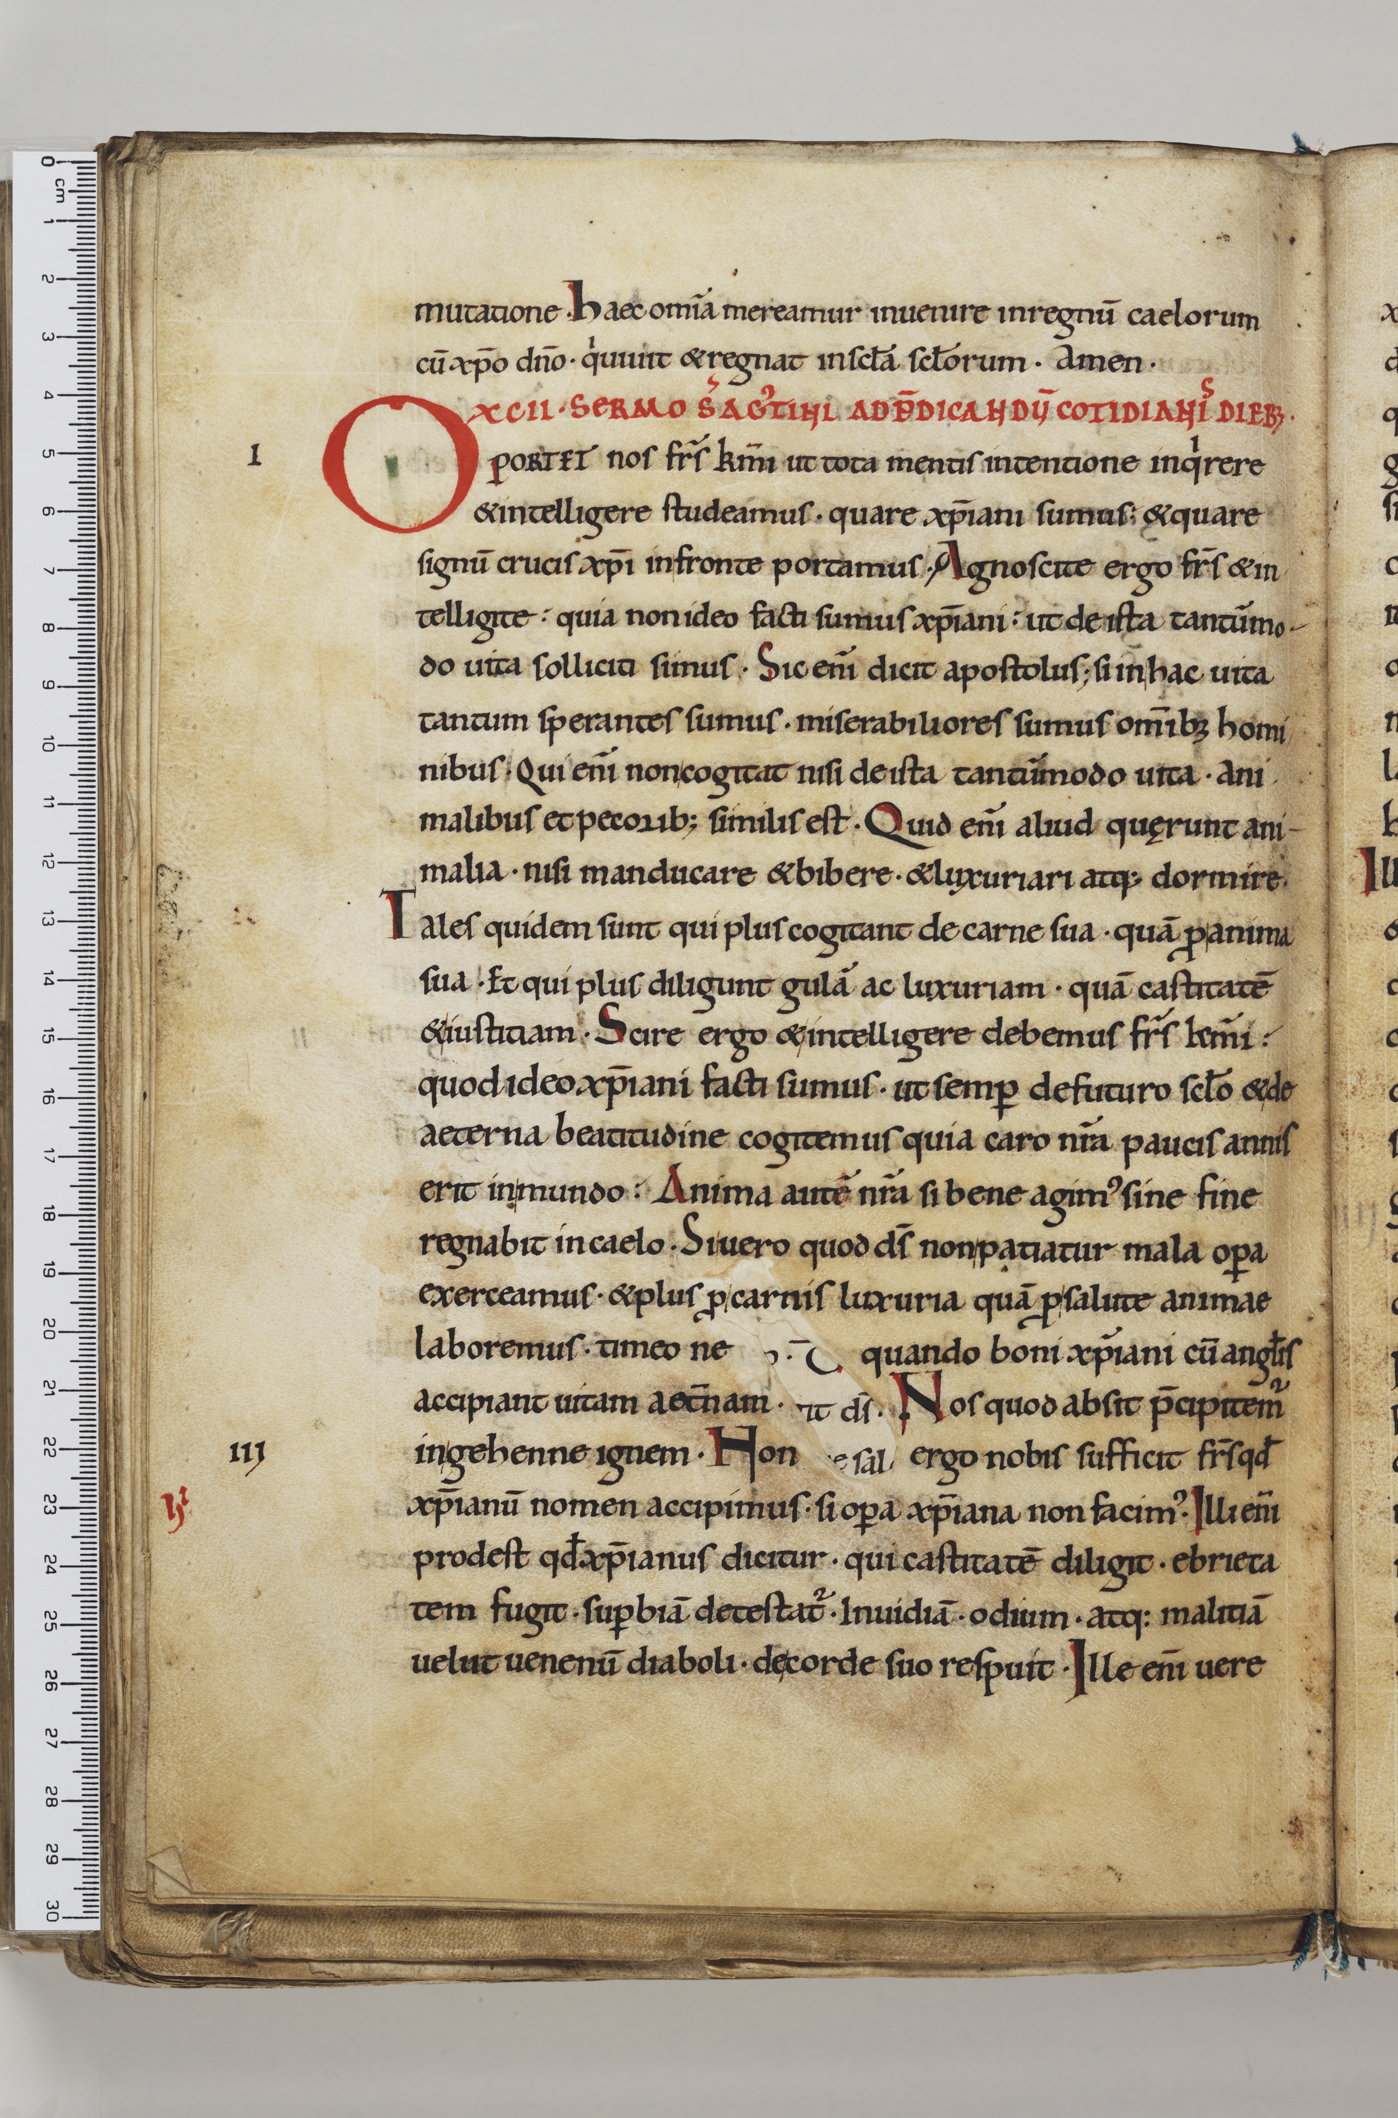 mutatione. Haec om̄ia mereamur inuenire inregnū caelorum
cū xp̄o dn̄o. qͥuiuit & regnat inscl̄a scl̄orum. Amen.
XCII. SERMO S̄ AGTINI AD P̄DICANDŪ COTIDIANIS DIEBꝫ.
I
OPORTET nos fr̄s km̄i ut tota mentis intentione inqͥrere
& intelligere studeamus. quare xp̄iani sumus; & quare
signū crucis xp̄i infronte portamus. Agnoscite ergo fr̄s & in
telligite: quia nonideo facti sumus xp̄iani: ut de ista tantūmo-
do uita solliciti simus. Sic enī dicit apostolus; si in hac uita
tantum sperantes sumus. miserabiliores sumus om̄ibꝫ homi
nibus. Qui enī noncogitat nisi de ista tantūmodo uita. ani
malibus et pecorib; similis est. Quid enī aliud quęrunt ani-
malia. nisi manducare & bibere. & luxuriari atq; dormire.
Tales quidem sunt qui plus cogitant de carne sua. quā ꝓ anima
sua. Et qui plus diligunt gulā ac luxuriam. quā castitatē
& iustitiam. Scire ergo & intelligere debemus fr̄s km̄i:
quod ideo xp̄iani facti sumus. ut semꝑ de futuro scl̄o & de
aeterna beatitudine cogitemus quia caro nr̄a paucis annis
erit in mundo: Anima autē nr̄a si bene agimꝰ sine fine
regnabit in caelo. Si uero quod ds̄ non patiatur mala oꝑa
exerceamus. & plus ꝓ carnis luxuria quā ꝓ salute animae
laboremus. timeo ne quando boni xp̄iani cū angl̄is
accipiant uitam aet̄nam. Nos quod absit p̄cipitemr̄
III
in gehenne ignem. Non ergo nobis sufficit fr̄s qd̄
xp̄ianū nomen accipimus. si oꝑa xp̄iana non facimꝰ. Illi enī
prodest qd̄ xp̄ianus dicitur. qui castitatē diligit. ebrieta
tem fugit. suꝑbiā detestatr̄. Inuidiā. odium. atq: malitiā
uelut uenenū diaboli. de corde suo respuit. Ille enī uere